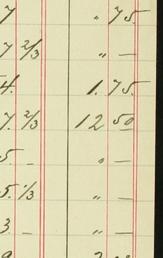 7 " 75.
7 2/3 " —
4. 1. 75.
7. 2/3 12 50
5 — " —
5. 1/3 " —
3 — " —